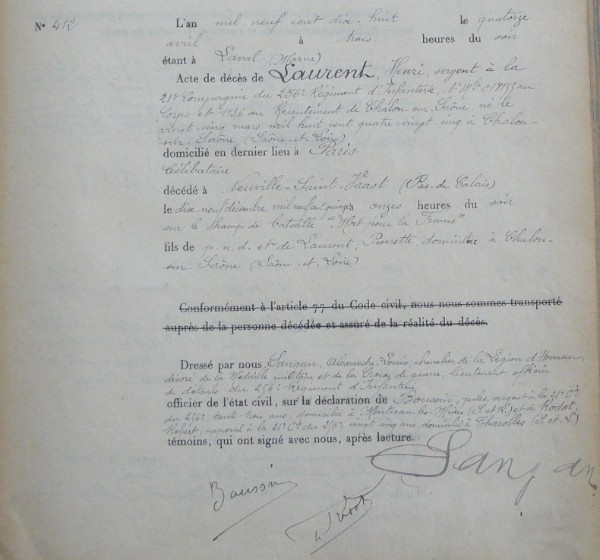 N° 412
L'an mil neuf cent dix-huit le quatorze
avril à trois heures du soir
étant à Laval (Marne)
Acte de décès de Laurent, Henri, sergent à la
21e Compagnie du 256e Régiment d'Infanterie, au
Corps et 1136 au Recrutement de Chalon-sur-Saône, né le
vingt cinq mars mil huit cent quatre-vingt cinq à Chalon-
sur-Saône (Saône-et-Loire)
domicilié en dernier lieu à Paris.
Célibataire
décédé à Neuville-Saint-Vaast (Pas de Calais)
le dix-neuf décembre mil neuf cent quinze à onze heures du soir
sur le champ de bataille "Mort pour la France"
fils de p.n.d. et de Laurent, Pierrette, domiciliée à Chalon-
sur-Saône (Saône-et-Loire)
Conformément à l'article 77 du Code civil, nous nous sommes transporté
auprès de la personne décédée et assuré de la réalité du décès.
Dressé par nous Sangan, Alexandre-Louis, chevalier de la Légion d'Honneur,
décoré de la Médaille militaire et de la Croix de guerre, lieutenant officier
de détails du 256e Régiment d'Infanterie
officier de l'état civil, sur la déclaration de Boussin, sergent à la 21e Cie
du 256e, trente trois ans, domicilié à Montceau-les-Mines (S. et L.) et de Rodot,
Robert, caporal à la 21e Cie du 256e, vingt cinq ans, domicilié à Charolles (S. et L.)
témoins, qui ont signé avec nous, après lecture.
Sangan
Boussin
Rodot